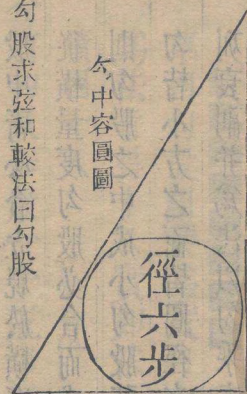 徑六步
勾中容圓圖
勾股求弦和較法曰勾股